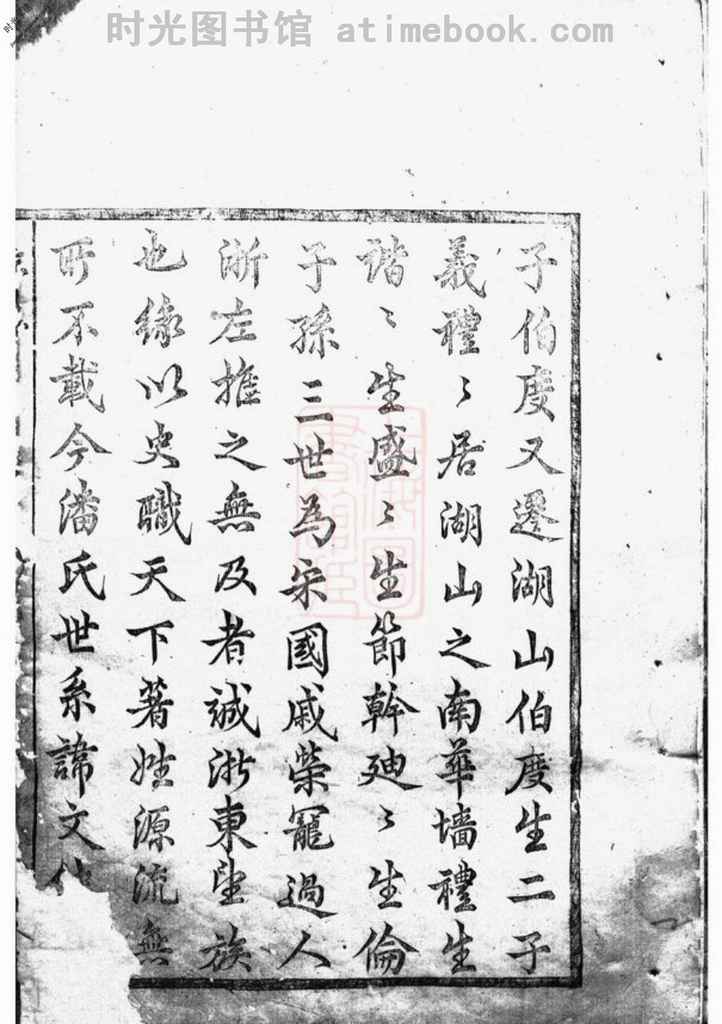 时光图书馆 atimebook.com
子伯度又遷湖山伯度生二子
義禮〻居湖山之南華墻禮生
諧〻生盛〻生節幹廸〻生倫
子孫三世為宋國戚榮寵過人
淅左推之無及者誠淅東望族
也緣以史職天下著姓源流無
所不載今潘氏世系諱文